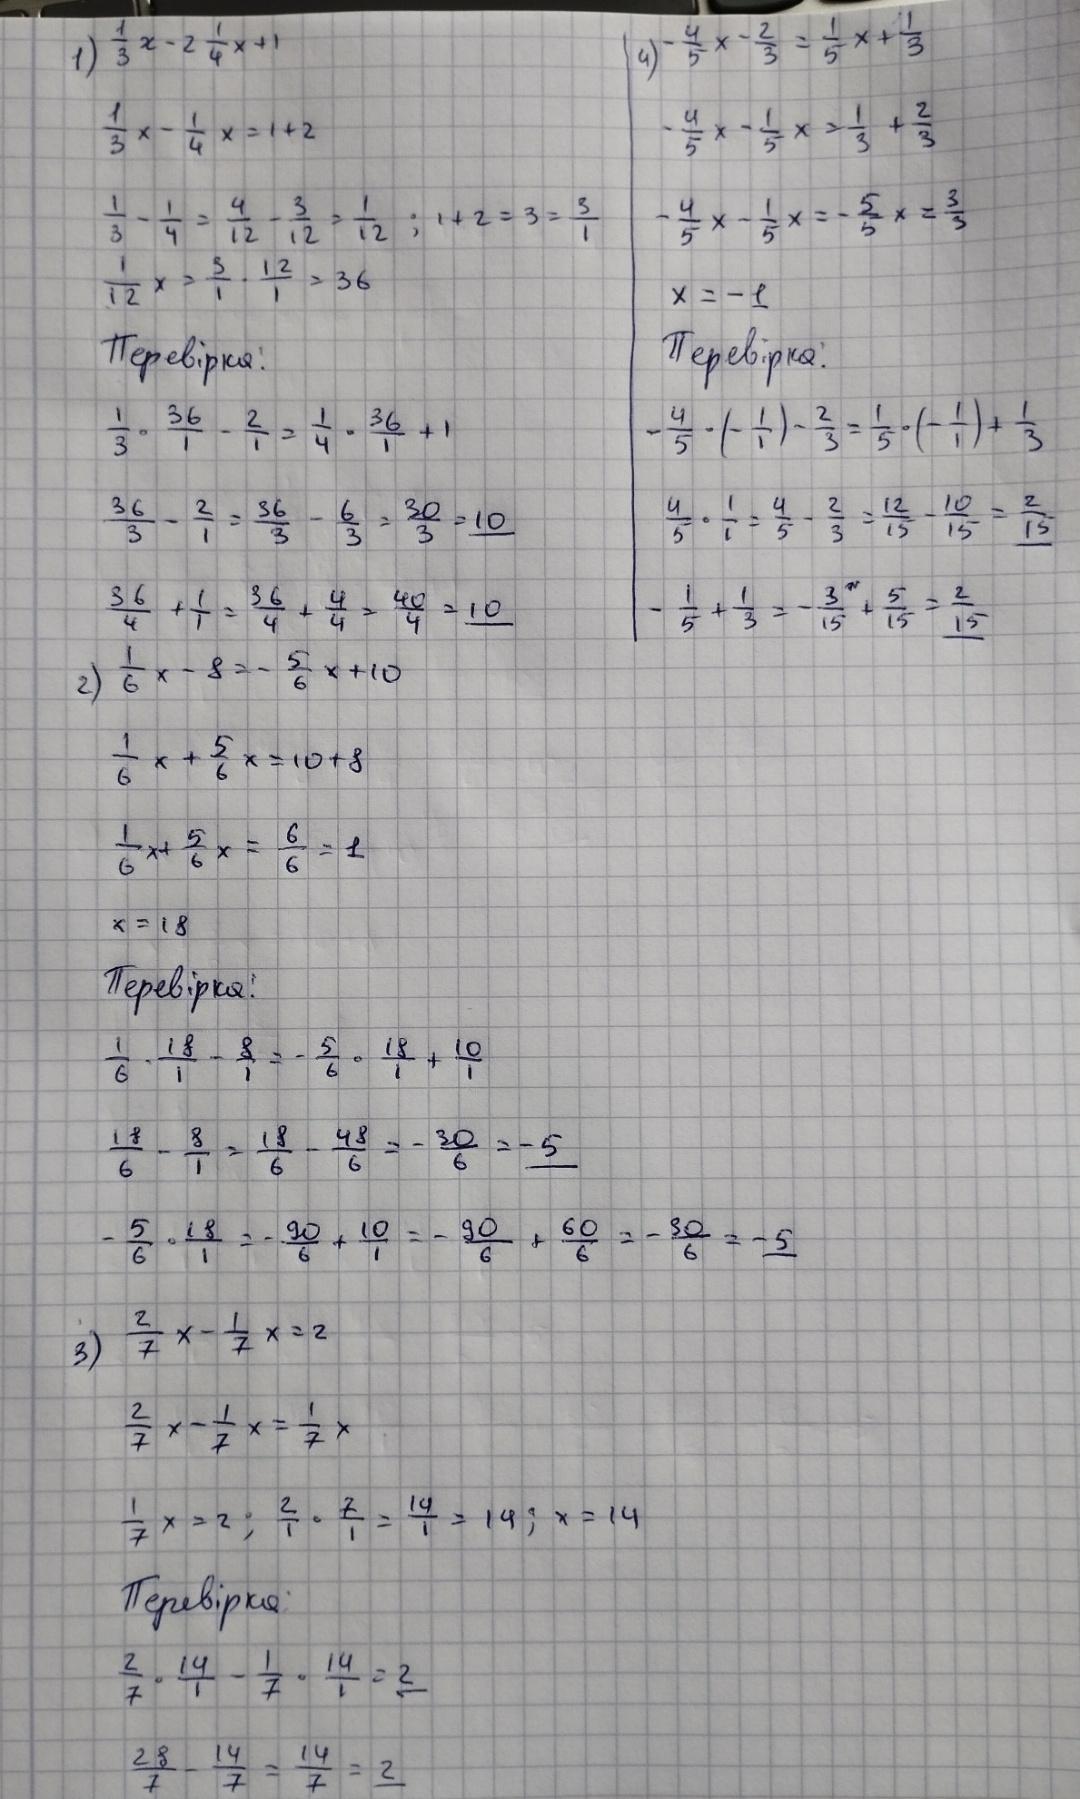 1) 1/3 x - 2 1/4 x + 1
1/3 x - 1/4 x = 1 + 2
1/3 - 1/4 = 4/12 - 3/12 = 1/12 ; 1 + 2 = 3 = 3/1
1/12 x = 3/1 · 12/1 = 36
Перевірка:
1/3 · 36/1 - 2/1 = 1/4 · 36/1 + 1
36/3 - 2/1 = 36/3 - 6/3 = 30/3 = 10
36/4 + 1/1 = 36/4 + 4/4 = 40/4 = 10
2) 1/6 x - 8 = - 5/6 x + 10
1/6 x + 5/6 x = 10 + 8
1/6 x + 5/6 x = 6/6 = 1
x = 18
Перевірка:
1/6 · 18/1 - 8/1 = - 5/6 · 18/1 + 10/1
18/6 - 8/1 = 18/6 - 48/6 = - 30/6 = - 5
- 5/6 · 18/1 = - 90/6 + 10/1 = - 90/6 + 60/6 = - 30/6 = - 5
3) 2/7 x - 1/7 x = 2
2/7 x - 1/7 x = 1/7 x
1/7 x = 2 ; 2/1 · 7/1 = 14/1 = 14 ; x = 14
Перевірка:
2/7 · 14/1 - 1/7 · 14/1 = 2
28/7 - 14/7 = 14/7 = 2
4) - 4/5 x - 2/3 = 1/5 x + 1/3
- 4/5 x - 1/5 x = 1/3 + 2/3
- 4/5 x - 1/5 x = - 5/5 x = 3/3
x = - 1
Перевірка:
- 4/5 · (- 1/1) - 2/3 = 1/5 · (- 1/1) + 1/3
4/5 · 1/1 = 4/5 - 2/3 = 12/15 - 10/15 = 2/15
- 1/5 + 1/3 = - 3/15 + 5/15 = 2/15